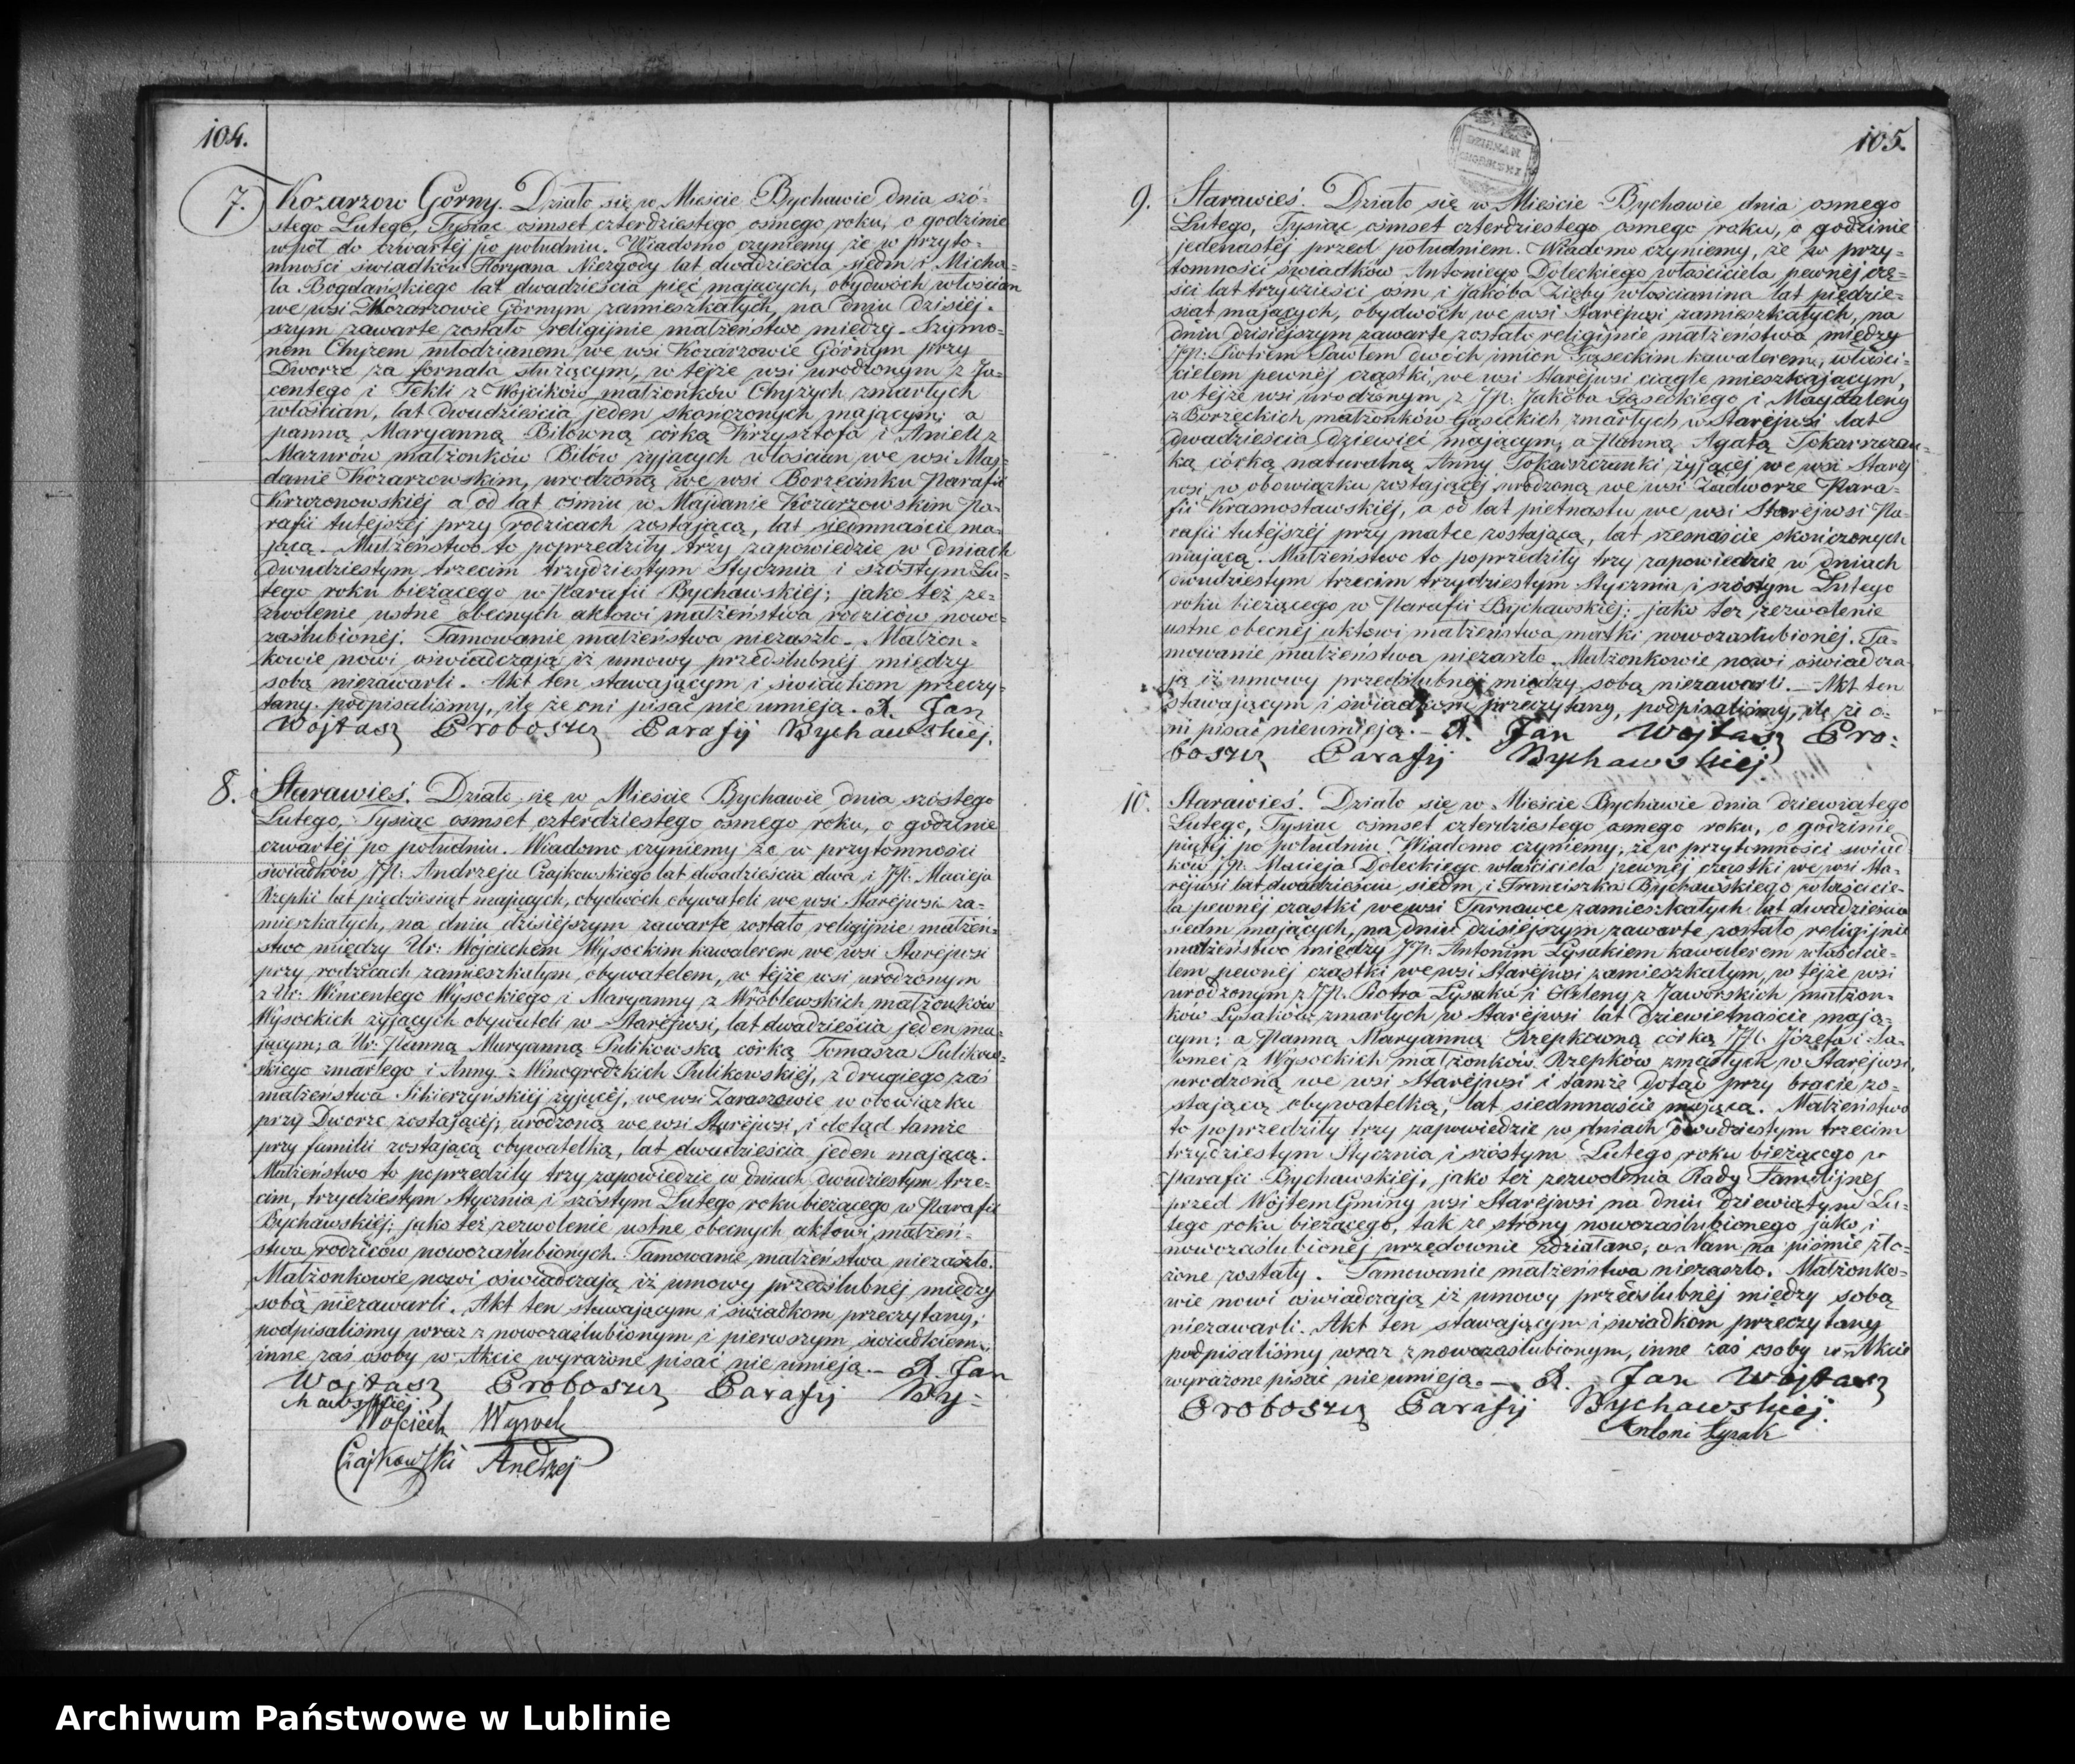 104.
7. Kozarzow Górny. Działo się w Mieście Bychawie dnia szó-
stego Lutego, Tysiąc ośmset czterdziestego osmego roku, o godzinie
wpół do czwartéj po południu. Wiadomo czyniemy że w przyto-
mności świadków Floryana Niezgody lat dwadzieścia siedm i Micha-
ła Bogdańskiego lat dwadzieścia pięć mających, obydwóch włościan
we wsi Kozarzowie Górnym zamieszkałych, na dniu dzisiéj-
szym zawarte zostało religijnie małżeństwo między Szymo-
nem Chyżem młodzianem we wsi Kozarzowie Górnym przy
Dworze za fornala służącym, w téjże wsi urodzonym z Ja-
centego i Tekli z Wójcików małżonków Chyżych zmarłych
włościan, lat dwadzieścia jeden skończonych mającym; a
panną Maryanną Bilówną córką Krzysztofa i Anieli z
Mazurów małżonków Bilów żyjących włościan we wsi Maj-
danie Kozarzowskim, urodzoną we wsi Borzęcinku Parafii
Krzczonowskiéj a od lat ośmiu w Majdanie Kozarzowskim Pa-
rafii tutéjszéj przy rodzicach zostającą, lat siedmnaście ma-
jącą. Małżeństwo to poprzedziły trzy zapowiedzie w dniach
dwudziestym trzecim trzydziestym Stycznia i szóstym Lu-
tego roku bieżącego w Parafii Bychawskiéj; jako też ze-
zwolenie ustne obecnych aktowi małżeństwa rodziców nowo-
zaślubionéj. Tamowanie małżeństwa niezaszło. Małżon-
kowie nowi oświadczają iż umowy przedślubnéj między
sobą niezawarli. Akt ten stawającym i świadkom przeczy-
tany podpisaliśmy, ile że oni pisać nie umieją. X. Jan
Wojtasz Proboszcz Parafij Bychawskiej.
8. Starawieś. Działo się w Mieście Bychawie dnia szóstego
Lutego, Tysiąc osmset czterdziestego osmego roku, o godzinie
czwartéj po południu. Wiadomo czyniemy że w przytomności
świadków JP: Andrzeja Czajkowskiego lat dwadzieścia dwa i JP: Macieja
Rzepki lat pięćdziesiąt mających, obydwóch obywateli we wsi Staréjwsi za-
mieszkałych, na dniu dzisiéjszym zawarte zostało religijnie małżeń-
stwo między Ur: Wojciechem Wysockim kawalerem we wsi Staréjwsi
przy rodzicach zamieszkałym, obywatelem, w téjże wsi urodzonym
z Ur: Wincentego Wysockiego i Maryanny z Wróblewskich małżonków
Wysockich żyjących obywateli w Staréjwsi, lat dwadzieścia jeden ma-
jącym; a Ur: Panną Maryanną Pulikowską córką Tomasza Pulikow-
skiego zmarłego i Anny z Winogrodzkich Pulikowskiéj, z drugiego zaś
małżeństwa żyjącéj, we wsi Zaraszowie w obowiązku
przy Dworze zostającéj; urodzoną we wsi Staréjwsi, i dotąd tamże
przy familii zostającą obywatelką, lat dwadzieścia jeden mającą.
Małżeństwo to poprzedziły trzy zapowiedzie w dniach dwudziestym trze-
cim, trzydziestym Stycznia i szóstym Lutego roku bieżącego w Parafii
Bychawskiéj; jako też zezwolenie ustne obecnych aktowi małżeń-
stwa rodziców nowozaślubionych. Tamowanie małżeństwa niezaszło.
Małżonkowie nowi oświadczają iż umowy przedślubnéj między
sobą niezawarli. Akt ten stawającym i świadkom przeczytany,
podpisaliśmy wraz z nowozaślubionym i pierwszym świadkiem,
inne zaś osoby w Akcie wyrażone pisać nie umieją. — X. Jan
Wojtasz Proboszcz Parafij By-
chawskiej
Wojciech Wysocki
Czajkowski Andrzej
105.
9. Starawieś. Działo się w Mieście Bychawie dnia osmego
Lutego, Tysiąc ośmset czterdziestego osmego roku, o godzinie
jedenastéj przed południem. Wiadomo czyniemy, że w przy-
tomności świadków Antoniego Doleckiego właściciela pewnéj czę-
ści lat trzydzieści ośm i Jakóba Zięby włościanina lat pięćdzie-
siąt mających, obydwóch we wsi Staréjwsi zamieszkałych, na
dniu dzisiéjszym zawarte zostało religijnie małżeństwo między
JP: Piotrem Pawłem dwóch imion Gąseckim kawalerem, właści-
cielem pewnéj cząstki, we wsi Staréjwsi ciągle mieszkającym,
w téjże wsi urodzonym z JP: Jakóba Gąseckiego i Magdaleny
z Borzęckich małżonków Gąseckich, zmarłych w Staréjwsi lat
dwadzieścia dziewięć mającym; a Panną Agatą Tokarszcan-
ką córką naturalną Anny Tokarszczanki żyjącéj we wsi Starej
wsi w obowiązku zostającéj urodzoną we wsi Zadworze Para-
fii Krasnostawskiéj, a od lat pietnastu we wsi Staréjwsi Pa-
rafii tutéjszéj przy matce zostającą, lat szesnaście skończonych
mającą. Małżeństwo to poprzedziły trzy zapowiedzie w dniach
dwudziestym trzecim trzydziestym Stycznia i szóstym Lutego
roku bieżącego w Parafii Bychawskiéj; jako też zezwolenie
ustne obecnéj aktowi małżeństwa matki nowozaślubionéj. Ta-
mowanie małżeństwa niezaszło. Małżonkowie nowi oświadcza-
ją iż umowy przedślubnéj między sobą niezawarli. — Akt ten
stawającym i świadkom przeczytany, podpisaliśmy, ile że o-
ni pisać nieumieją. — X. Jan Wojtasz Pro-
boszcz Parafij Bychawskiej
10. Starawieś. Działo się w Mieście Bychawie dnia dziewiątego
Lutego, Tysiąc ośmset czterdziestego osmego roku, o godzinie
piątéj po południu. Wiadomo czyniemy, że w przytomności świad-
ków JP: Macieja Doleckiego właściciela pewnéj cząstki we wsi Sta-
réjwsi lat dwadzieścia siedm, i Franciszka Bychawskiego właścicie-
la pewnéj cząstki we wsi Tarnawce zamieszkałych lat dwadzieścia
siedm mających, na dniu dzisiejszym zawarte zostało religijnie
małżeństwo między JP: Antonim Łysakiem kawalerem właścicie-
lem pewnéj cząstki we wsi Staréjwsi zamieszkałym, w téjże wsi
urodzonym z JP: Piotra Łysaka i Heleny z Jaworskich małżon-
ków Łysaków zmarłych w Staréjwsi lat dziewietnaście mają-
cym; a Panną Maryanną Rzepkówną córką JP: Józefa i Sa-
lomei z Wysockich małżonków Rzepków zmarłych w Staréjwsi,
urodzoną we wsi Staréjwsi i tamże dotąd przy bracie zo-
stającą obywatelką, lat siedmnaście mającą. Małżeństwo
to poprzedziły trzy zapowiedzie w dniach dwudziestym trzecim
trzydziestym Stycznia i szóstym Lutego roku bieżącego w
Parafii Bychawskiéj, jako też zezwolenia Rady Familijnej
przed Wójtem Gminy wsi Staréjwsi na dniu dziewiątym Lu-
tego roku bieżącego, tak ze strony nowozaślubionego jako i
nowozaślubionéj urzędownie zdziałane, a Nam na piśmie zło-
żone zostały. Tamowanie małżeństwa niezaszło. Małżonko-
wie nowi oświadczają iż umowy przedślubnéj między sobą
niezawarli. Akt ten stawającym i świadkom przeczytany
podpisaliśmy wraz z nowozaślubionym, inne zaś osoby w Akcie
wyrażone pisać nie umieją. — X. Jan Wojtasz
Proboszcz Parafij Bychawskiej.
Antoni Łysak
Archiwum Państwowe w Lublinie